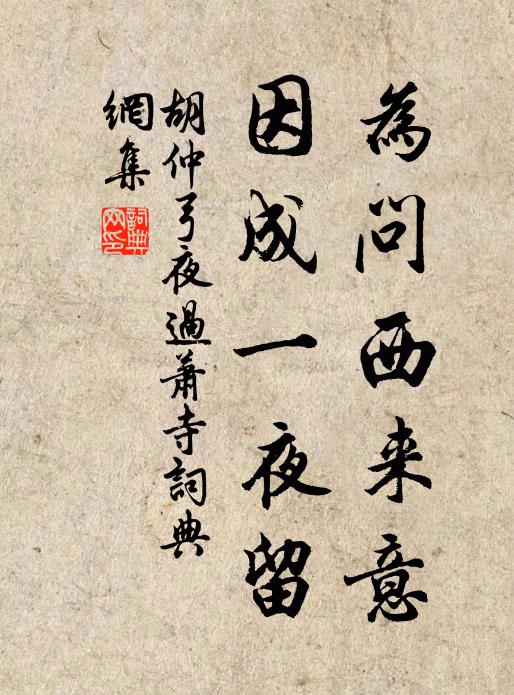 為問西来意
因成一夜留
胡仲弓夜過蕭寺詞典
網集
詞典網印